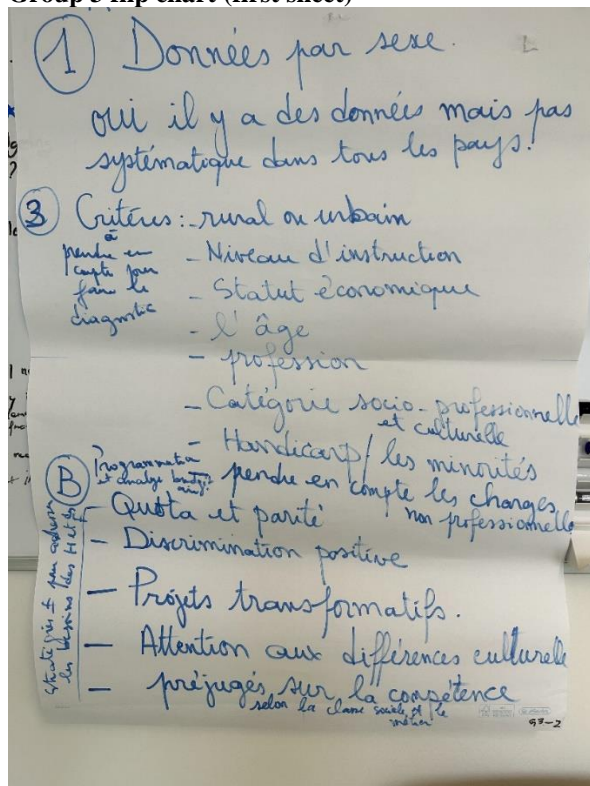 Group 3 flip chart (first sheet)
1 Données par sexe.
oui il y a des données mais pas
systématique dans tous les pays.
3 Critères : - rural ou urbain
à
prendre en
compte pour
faire le
diagnostic
- Niveau d'instruction
- Statut économique
- l'âge
- profession
- Catégorie socio-professionnelle
et culturelle
- Handicap / les minorités
B Programmation
et analyse
- pendre en compte les charges
non professionnelle
stratégies pour
les besoins des H et des
- Quota et parité
- Discrimination positive
- Projets transformatifs.
- Attention aux différences culturelle
- préjugés sur la compétence
selon la classe sociale et le
métier
G3-2